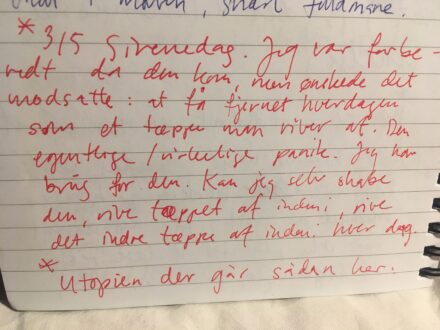 i maven, snart fuldmåne.
* 3/5 Sirenedag. Jeg var forbe-
redt da den kom, men ønskede det
modsatte: at få fjernet hverdagen
som et tæppe man river af. Den
egentlige / virkelige panik. Jeg har
brug for den. Kan jeg selv skabe
den, rive tæppet af indeni, rive
det indre tæppe af indeni hver dag.
*
Utopien der går sådan her.